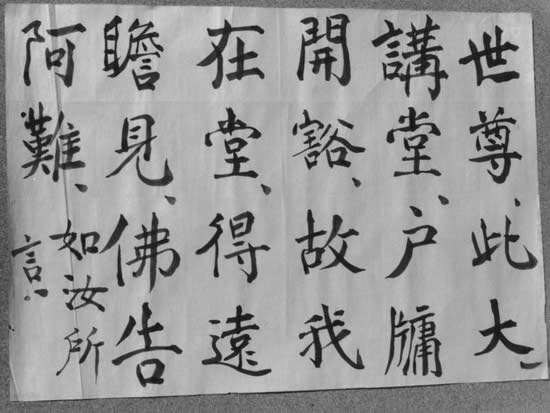 世尊、此大
講堂、戶牖
開豁、故我
在堂、得遠
瞻見、佛告
阿難、如汝所
言、